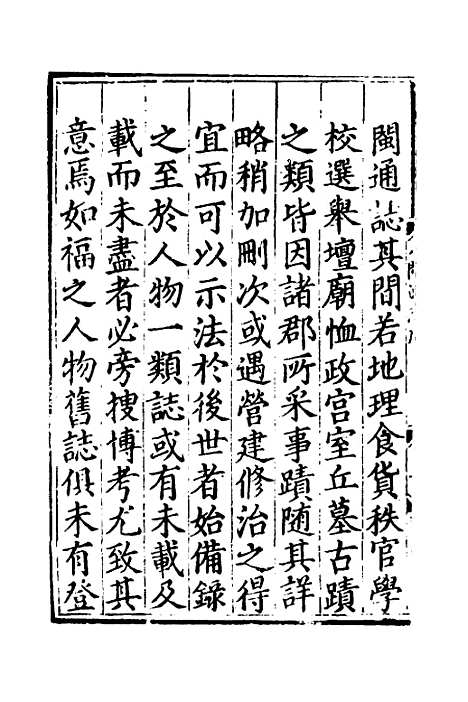 閩通誌其間若地理食貨秩官學
校選舉壇廟恤政宫室丘墓古蹟
之類皆因諸郡所采事蹟随其詳
略稍加刪次或遇營建修治之得
宜而可以示法於後世者始備錄
之至於人物一類誌或有未載及
載而未盡者必旁搜博考尤致其
意焉如福之人物舊誌俱未有登